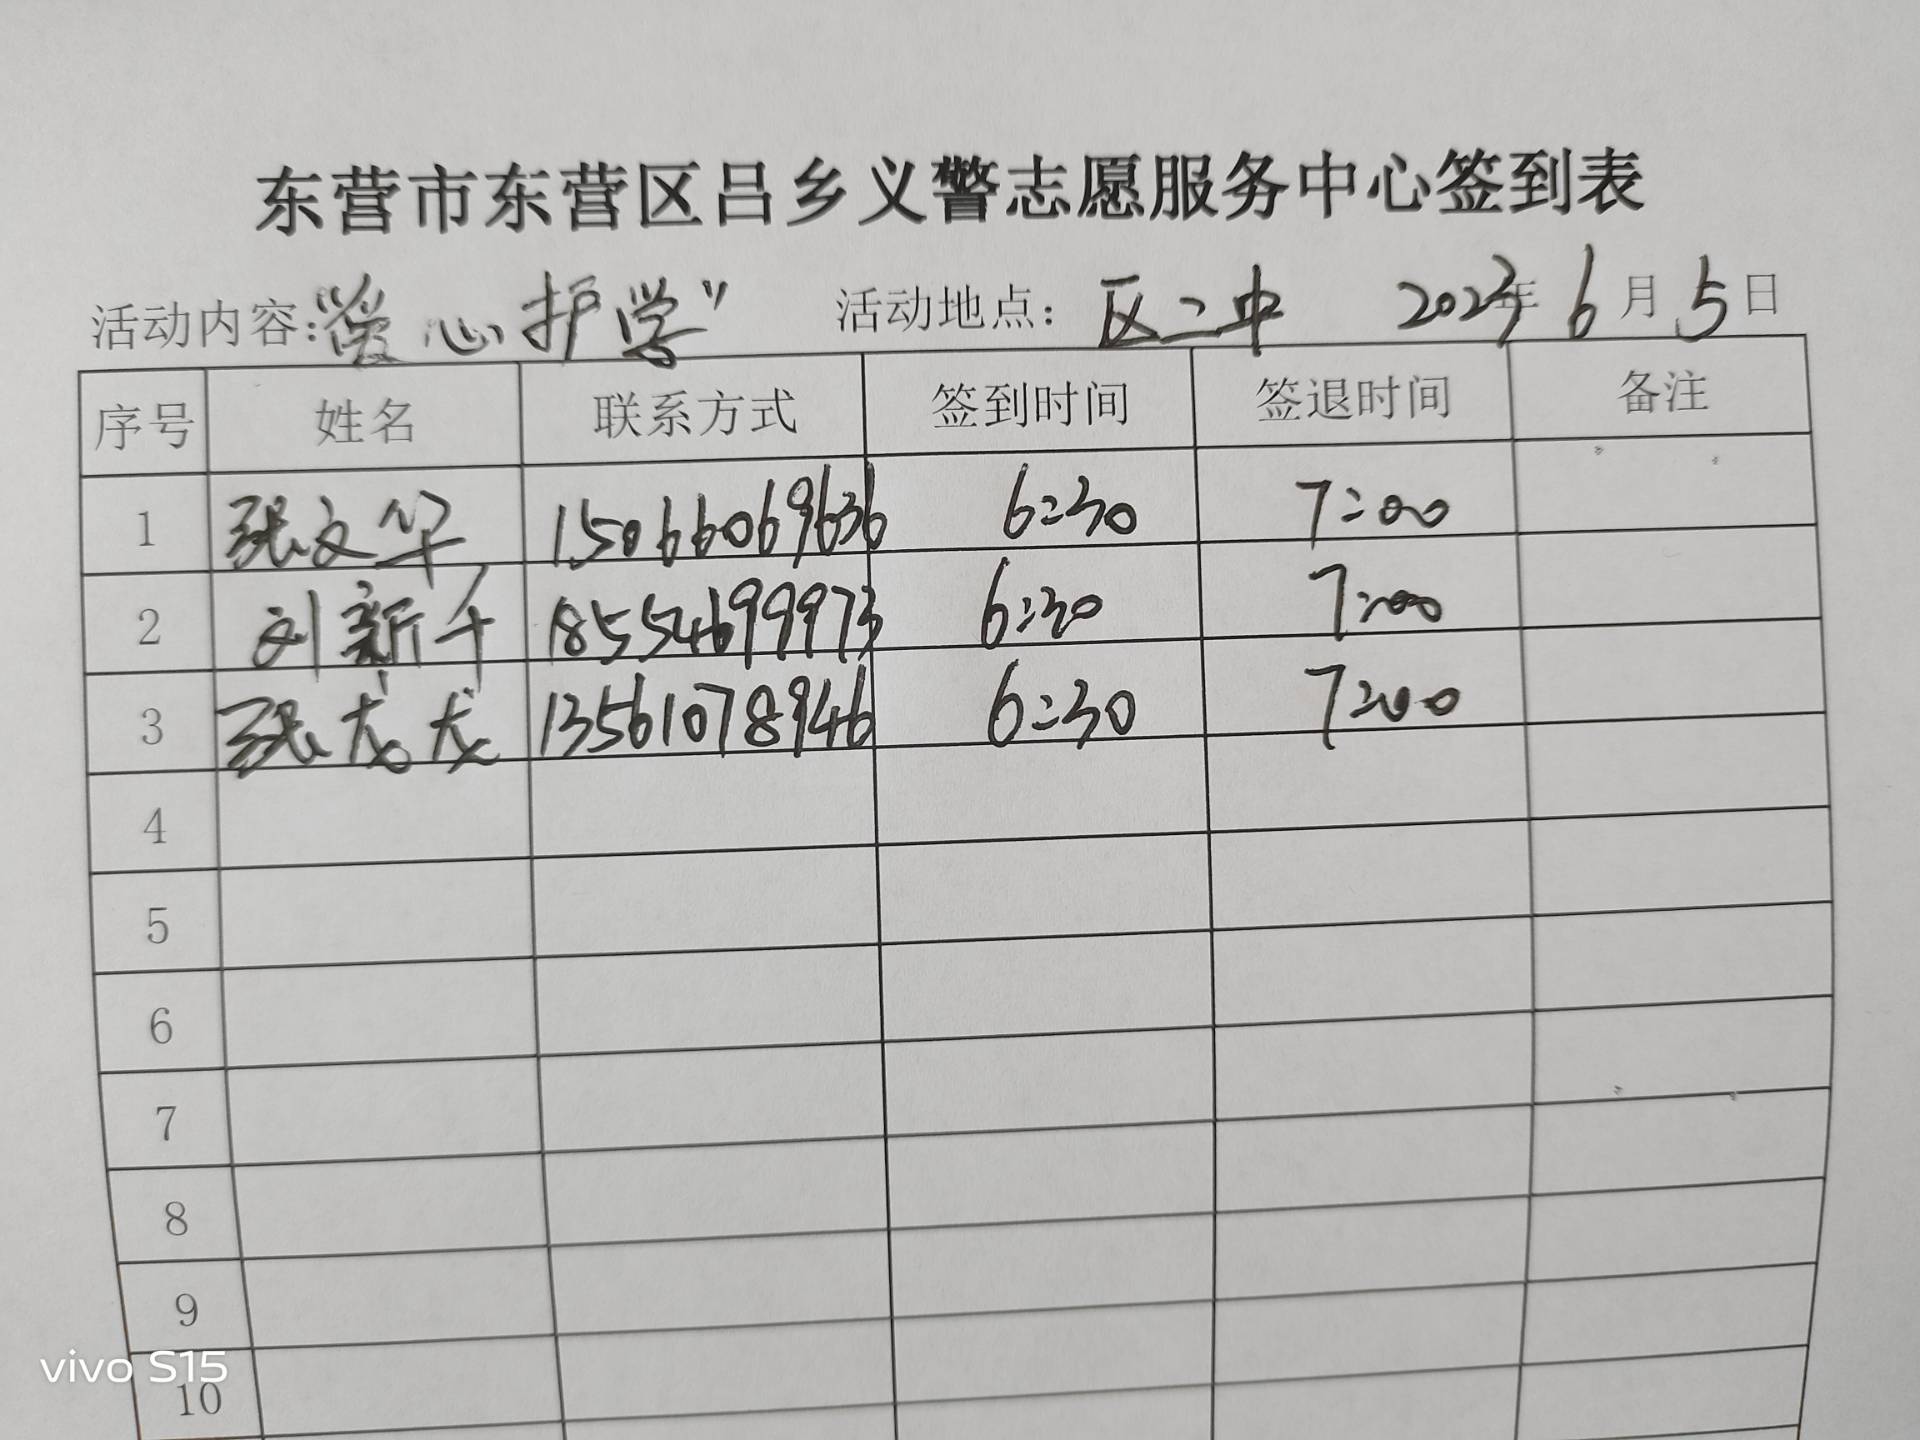 东营市东营区吕乡义警志愿服务中心签到表
活动内容:“爱心护学” 活动地点: 区二中 2023年6月5日
序号 姓名 联系方式 签到时间 签退时间 备注
1 张文华 15066069636 6:30 7:00
2 刘新千 18554699973 6:30 7:00
3 张龙龙 13561078946 6:30 7:00
4
5
6
7
8
9
10
vivo S15